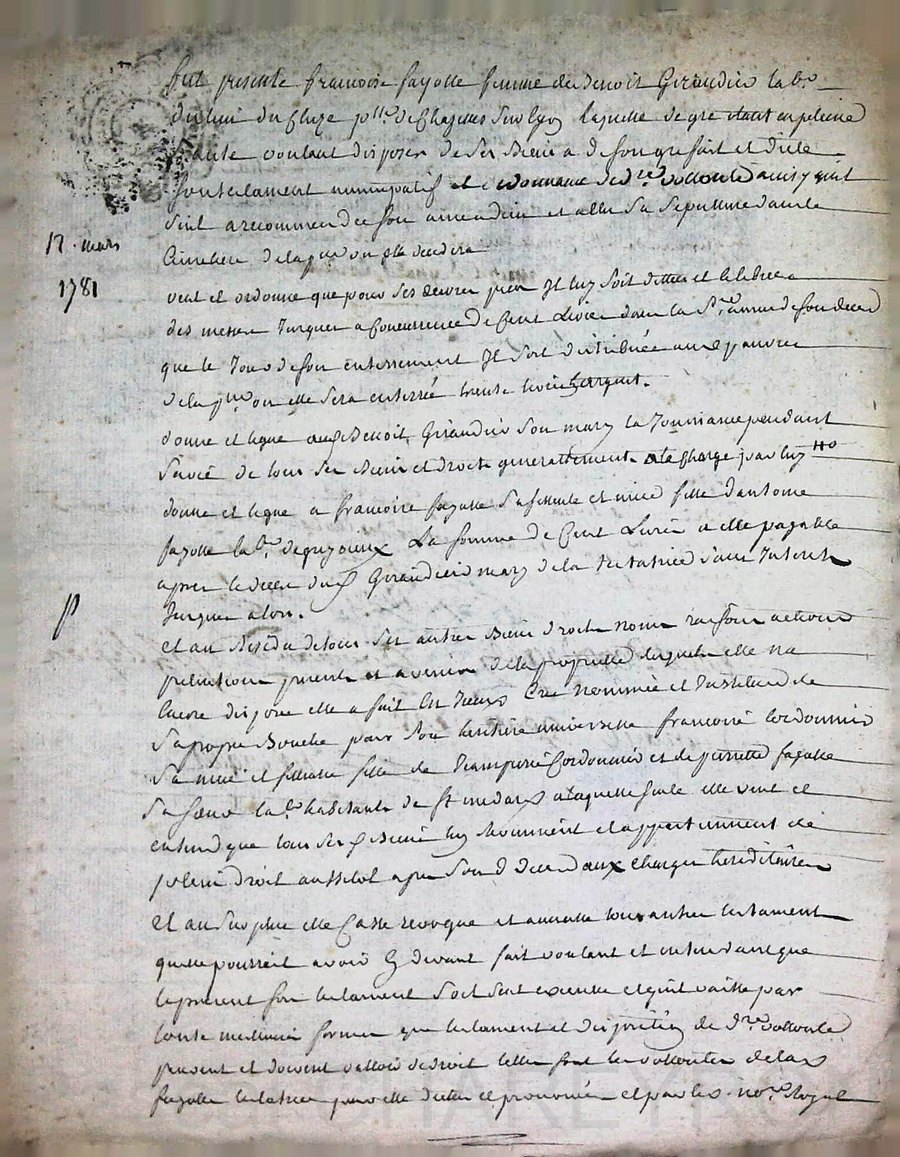 fut presente francoise fayolle femme de benoit Girandier lab.r
du lieu du Cluze p.sse de Chazelles sur lyon laquelle de gre etant en pleine
sante voulant disposer de ses Biens a de son gre fait et dicte
son testament nuncupatif et ordonnance de d.re vollonté ainsy quil
suit a recommande son ame a dieu et esleu sa sepulture dans le
Cimetiere de la p.sse ou elle decedera
17 mars
1781
veut et ordonne que pour ses œuvres pies Il luy soit dittes et celebrees
des messes Jusques a Concurrence de Cent Livres dans la p.re annee de son deces
que le Jour de son enterrement Il soit distribuée aux pauvres
de la p.sse ou elle sera enterrée trente livres argent.
donne et legue aud Benoit Girandier son mary la Jouissance pendant
sa vie de tous ses Biens et droits generallement a la Charge par luy
donne et legue a francoise fayolle sa filleule et niece fille d'antoine
fayolle lab.r de La somme de Cent Livres a elle payable
apres le deces dud Girandier mary de la testatrice sans Interets
Jusques alors.
et au Residu de tous ses autres Biens droits noms raisons actions
pretentions presents et avenir de la propriette desquels elle na
encore dispose elle a fait Cree nommée et Instituee de
sa propre Bouche pour son heritiere universelle francoise Cordonnier
sa niece et filleule fille de Cordonnier et de pierrette fayolle
sa sœur lab.r habitants de St medard a laquelle seule elle veut et
entend que tous sesd Biens luy viennent et appartiennent de
plein droit aussitot apres sond deces aux charges hereditaires
Et au surplus elle Casse revoque et annulle tous autres testament
quelle pourroit avoir Cy devant fait voulant et entendant que
le present son testament soit seul execute et quil vaille par
toute meilleure forme que testament et disposition de d.re vollonté
peuvent et doivent valloir de droit telles sont les vollontes de lad
fayolle testatrice par elle dictées et prononcée et par les no.res Royal